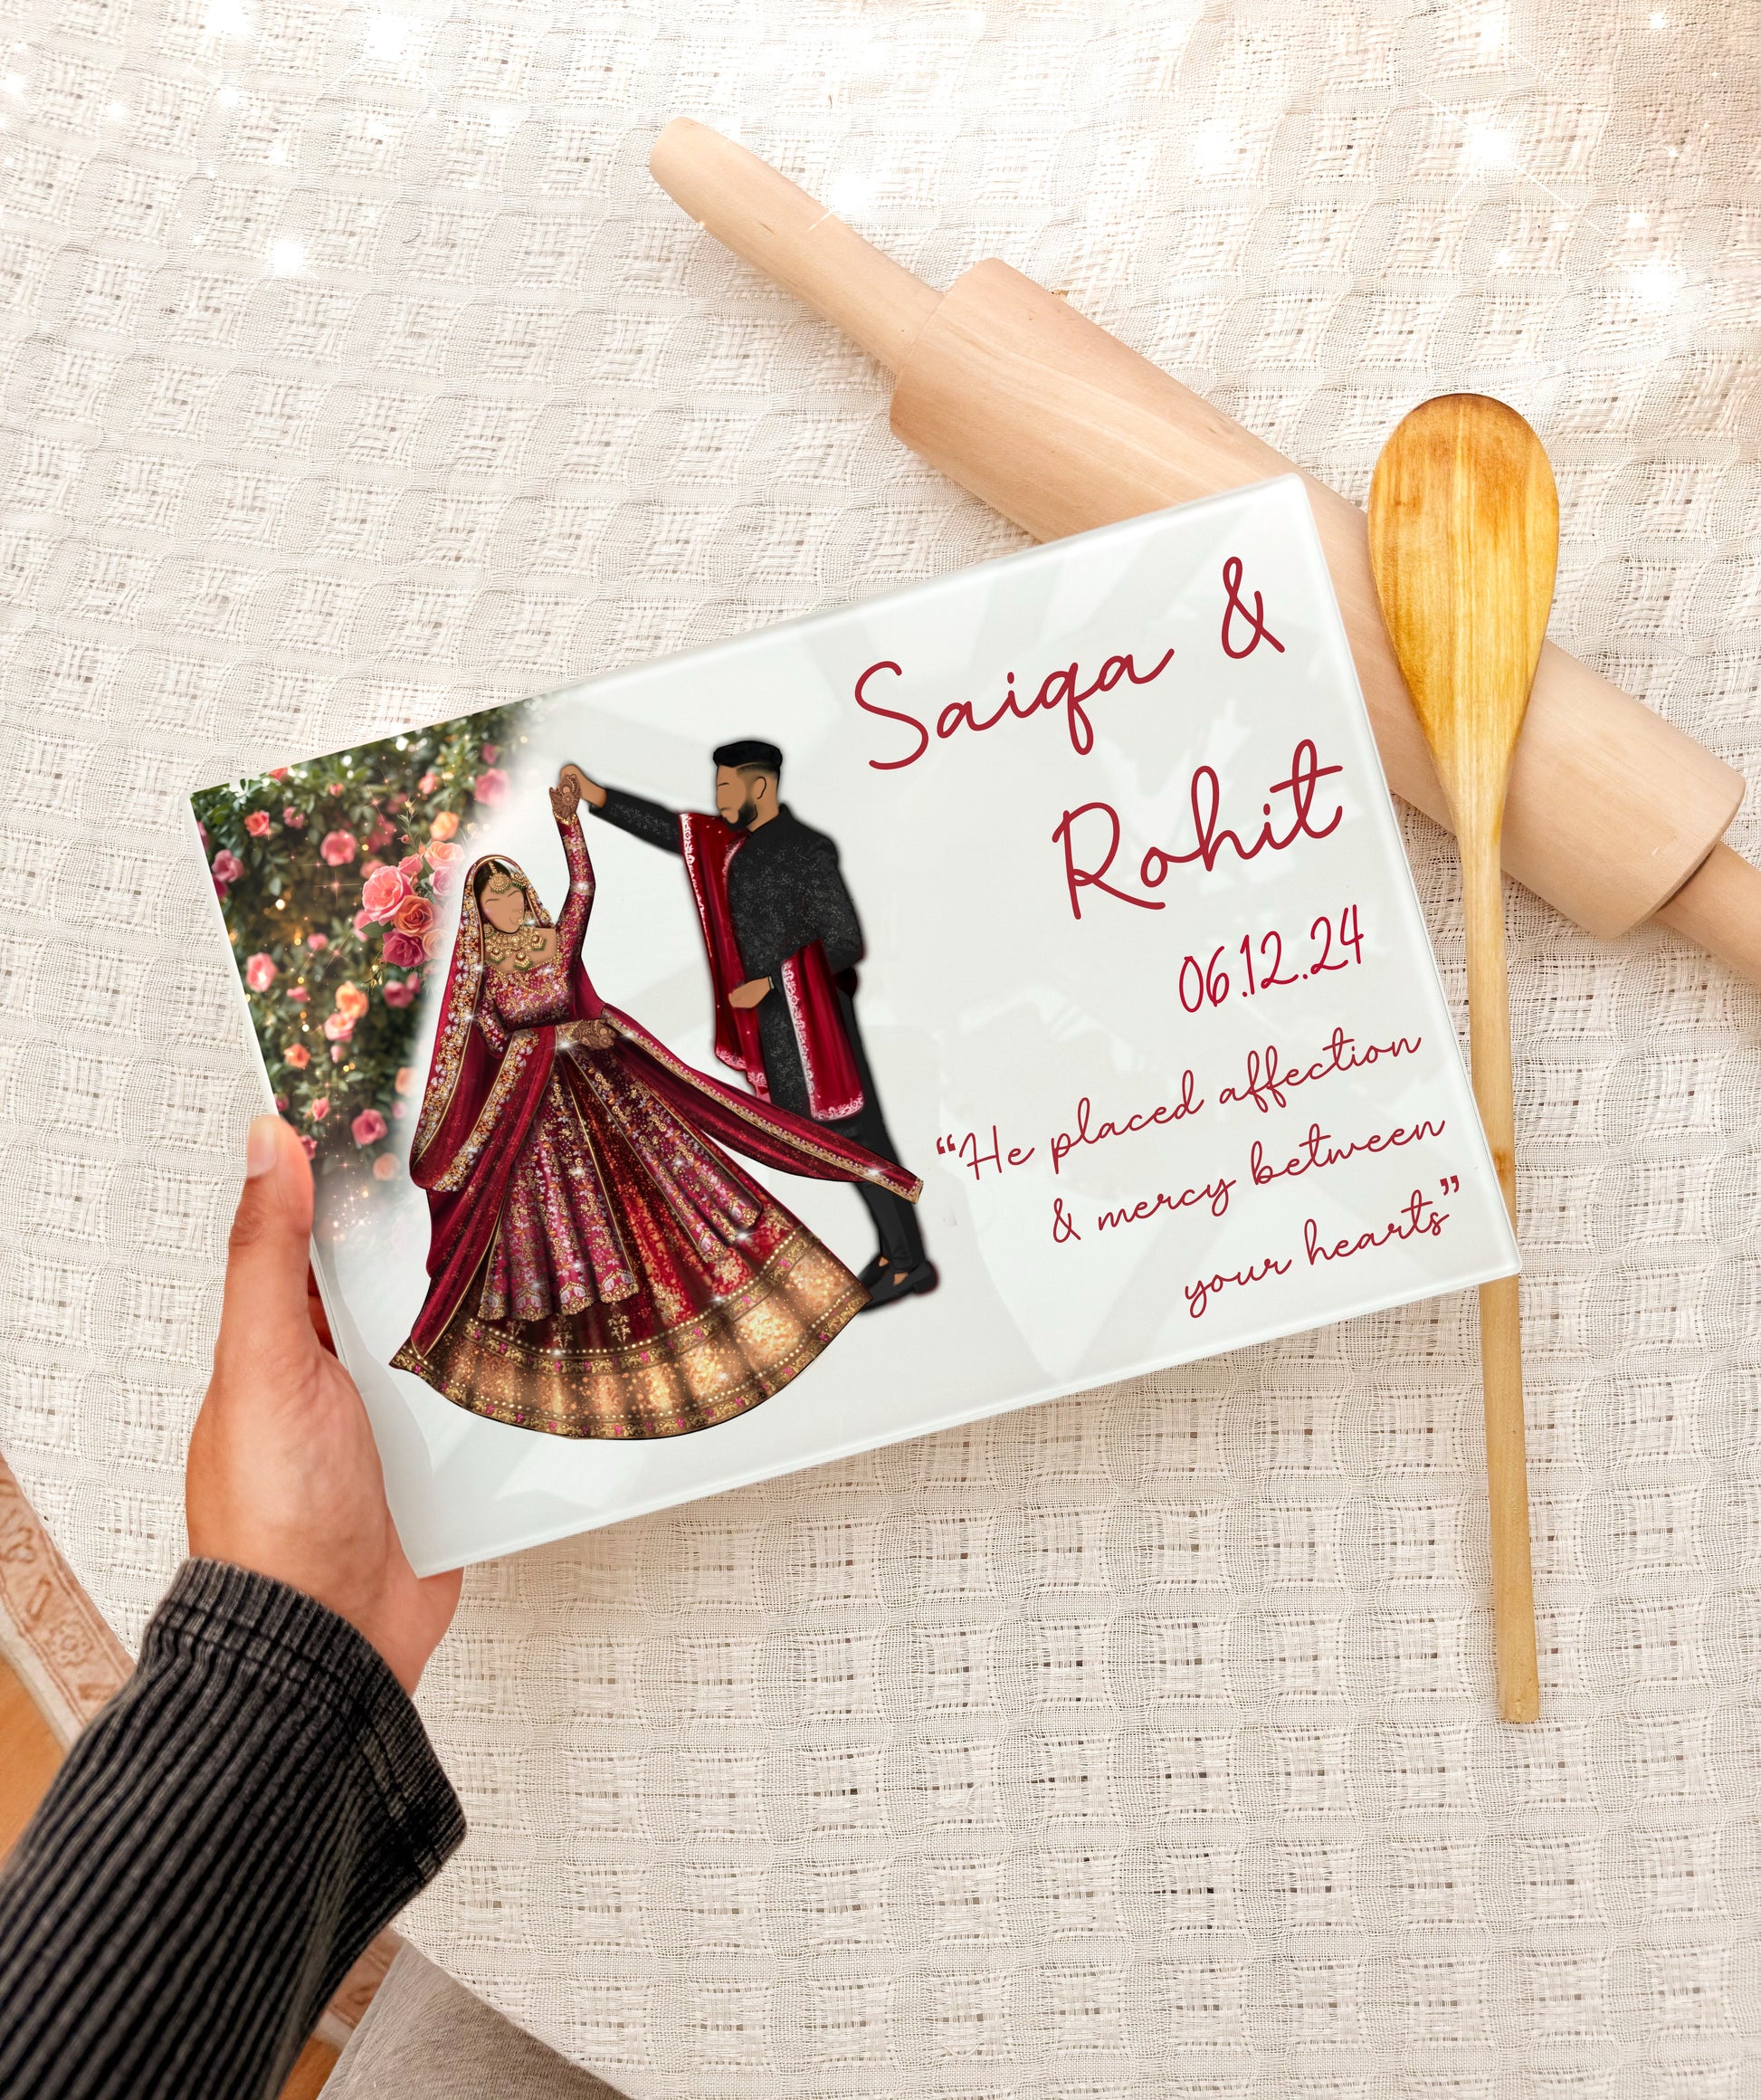 Saiqa &
Rohit
06.12.24
“He placed affection
& mercy between
your hearts”